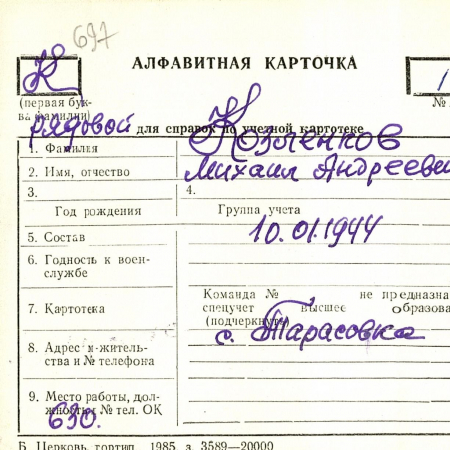 697
К
АЛФАВИТНАЯ КАРТОЧКА
1
(первая бук-
ва фамилии)
№
рядовой для справок по учетной картотеке
1. Фамилия Козленков
2. Имя, отчество Михаил Андреевич
3. 4.
Год рождения Группа учета
5. Состав 10.01.1944
6. Годность к воен-
службе
Команда № не предназна
7. Картотека спецучет высшее образова
(подчеркнуть)
с. Тарасовка
8. Адрес м-житель-
ства и № телефона
9. Место работы, дол-
жность и № тел. ОК
630.
Б. Церковь, гортип. 1985 з. 3589—20000